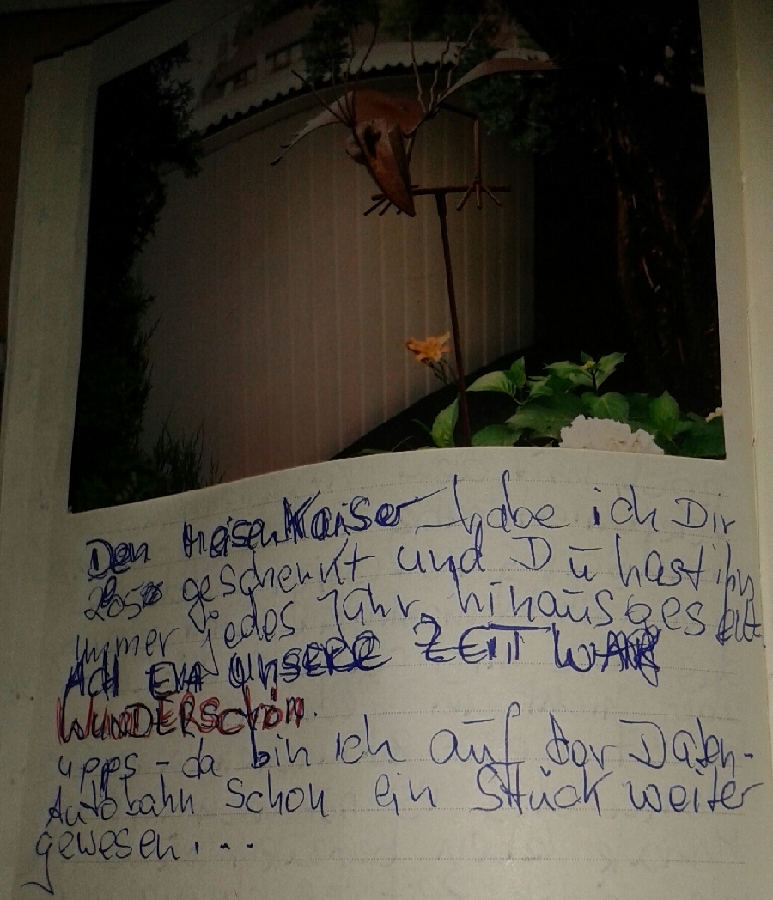 Den Kaiser habe ich Dir
geschenkt und Du hast ihn
immer jedes Jahr hinausgestellt
Ach Eva unsere ZEIT WAR
WUNDERSchön.
upps - da bin ich auf der Daten-
Autobahn schon ein Stück weiter
gewesen...